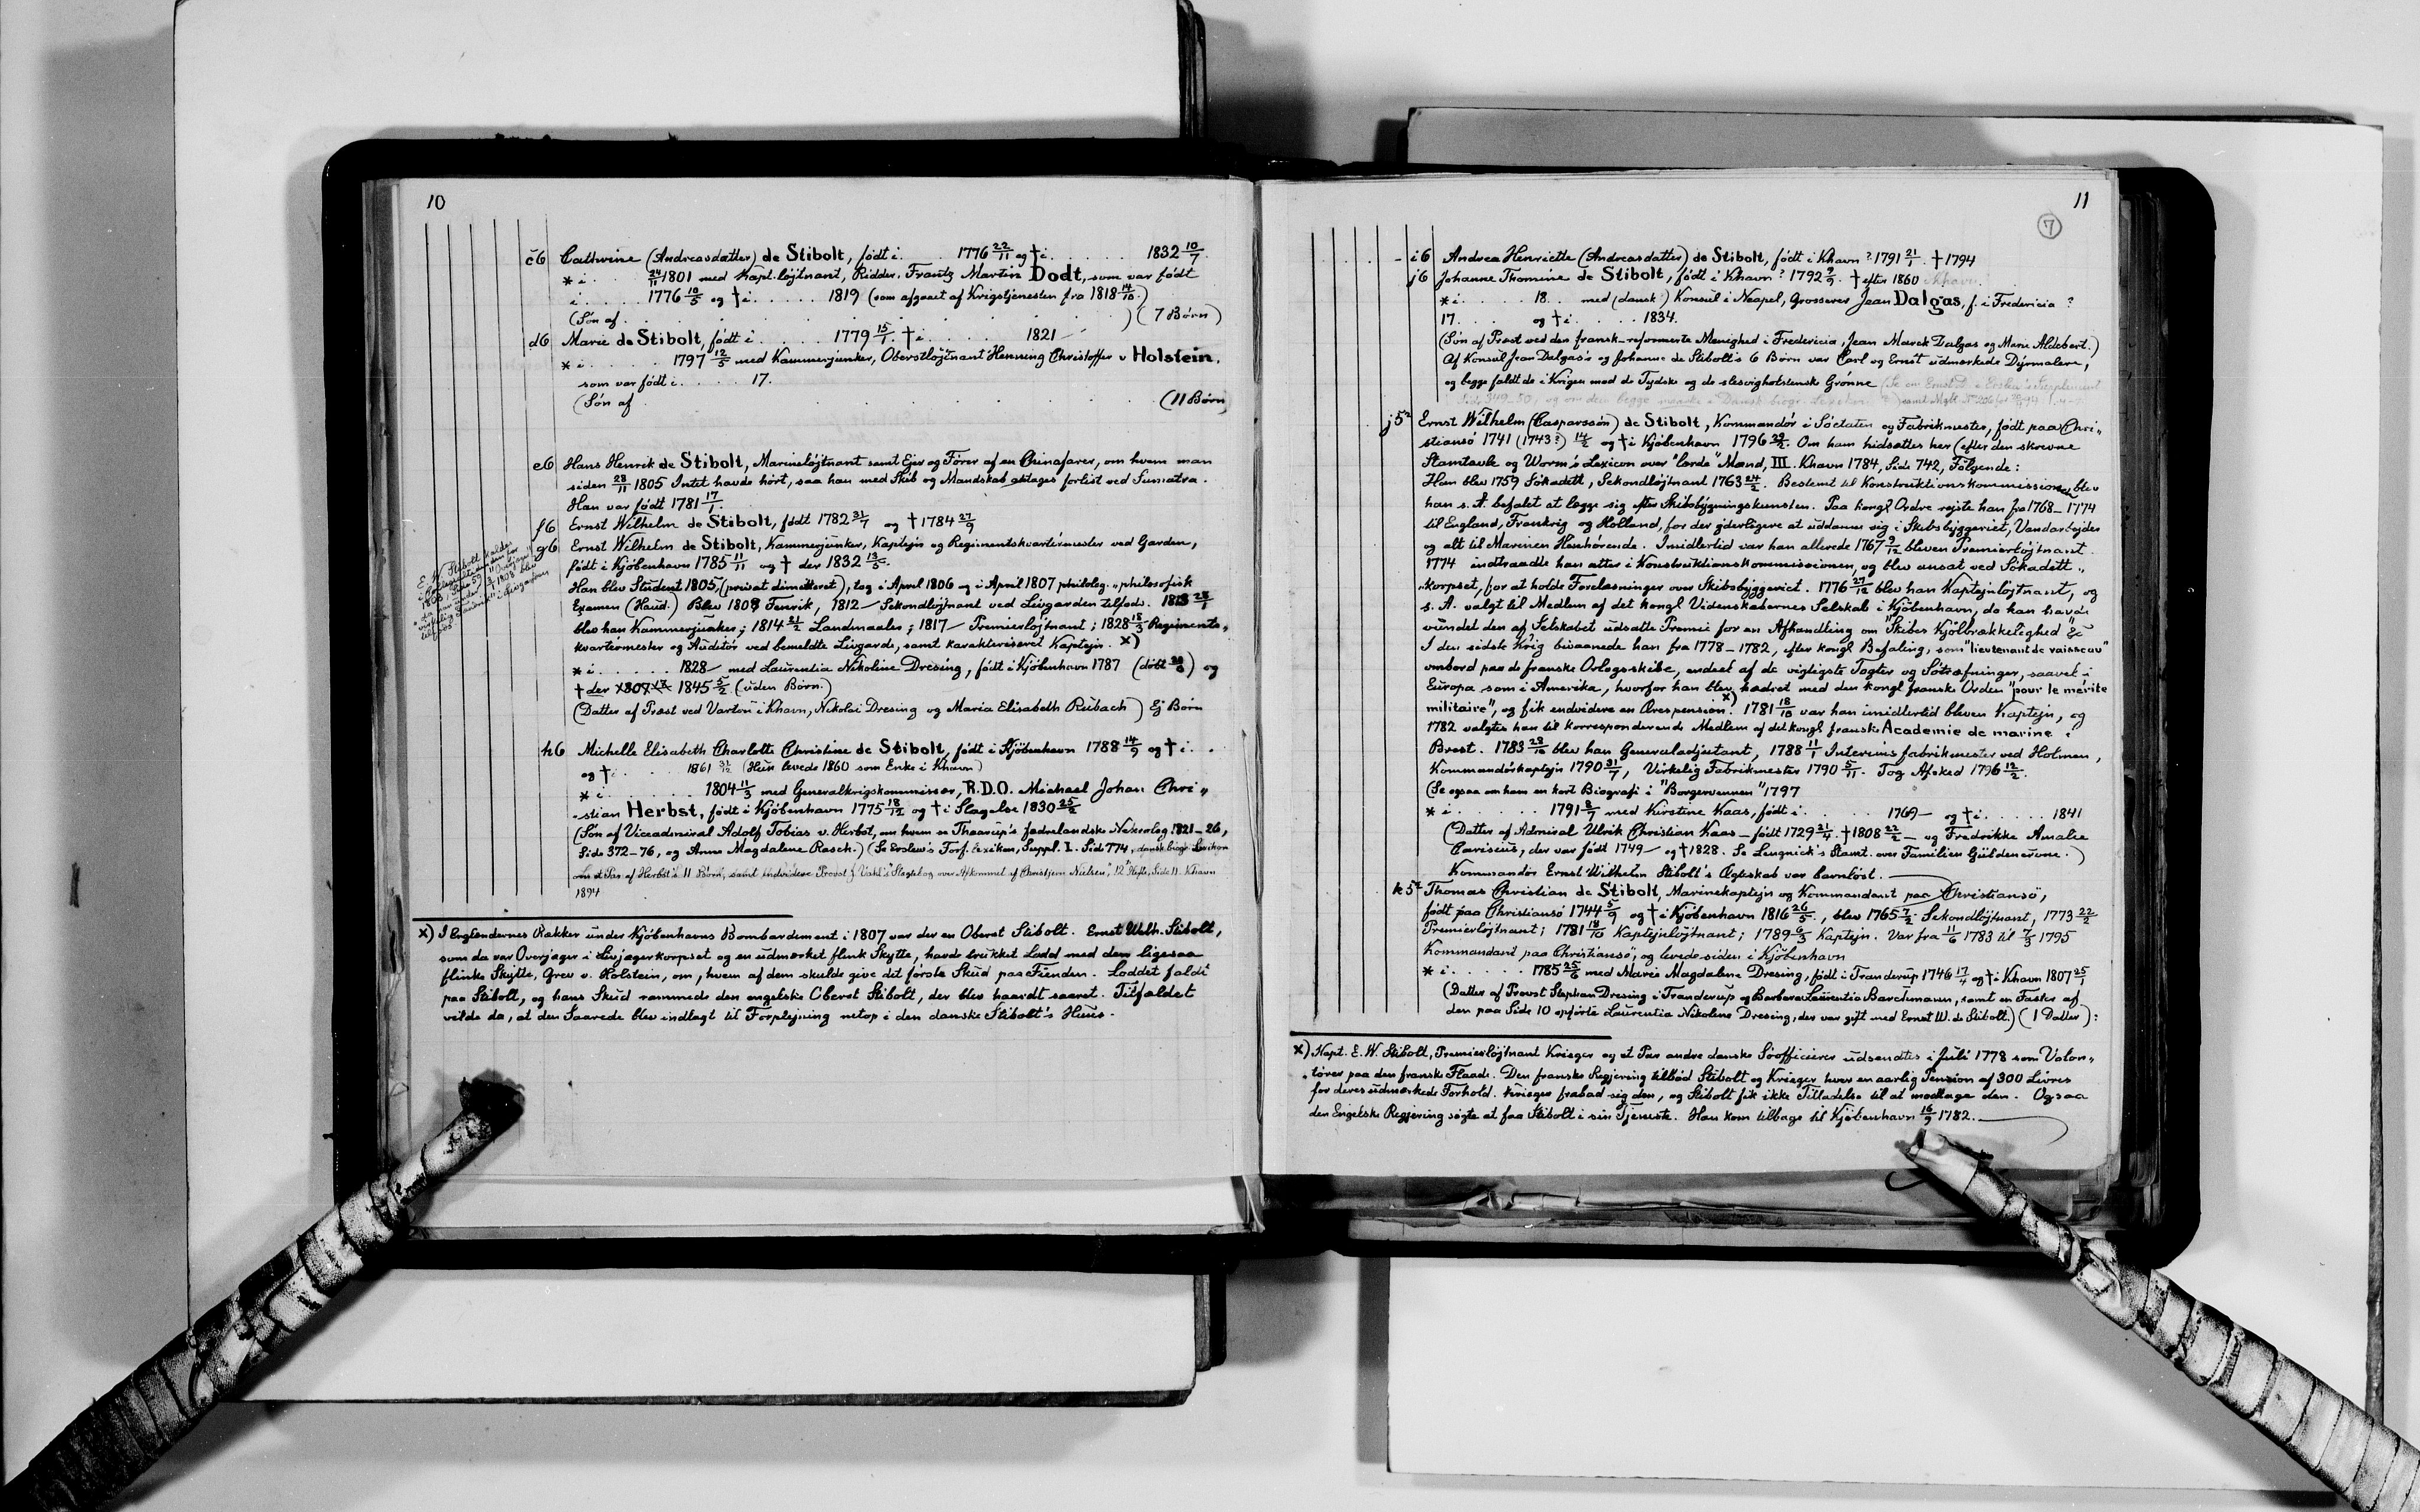 10
c6 Cathrine (Andreasdatter) de Stibolt, født i . . 1776 22/11 og † i . . . . . 1832 10/7.
* i . . 24/11 1801 med Kapt.løjtnant, Ridder, Frantz Martin Dodt, som var født
i . . . . 1776 10/5 og † i . . . . . 1819 (som afgaaet af Krigstjenesten fra 1818 14/10.)
(Søn af . . . . . . . . . . ) (7 Børn)
d6 Marie de Stibolt, født i . . . . . 1779 15/. † i . . . . . 1821
* i . . . . . 1797 12/5 med Kammerjunker, Oberstløjtnant Henning Christoffer v Holstein,
som var født i . . . . 17.
(Søn af . . . . . . . . . . (11 Børn)
e6 Hans Henrik de Stibolt, Marineløjtnant samt Ejer og Fører af en Chinafarer, om hvem man
siden 28/11 1805 Intet havde hørt, saa han med Skib og Mandskab antages forlist ved Sumatra.
Han var født 1781 17/1.
f6 Ernst Wilhelm de Stibolt, født 1782 31/7 og † 1784 27/9
g6 Ernst Wilhelm de Stibolt, Kammerjunker, Kaptejn og Regimentskvartérmester ved Garden,
født i Kjöbenhavn 1785 11/11 og † der 1832 13/5.
Han blev Student 1805, (privat dimitteret), tog i April 1806 og i April 1807 philolog.-philosofisk
Examen (Haud.) Blev 1809 Fenrik, 1812 – Sekondløjtnant ved Livgarden tilfods. 1813 28/1
blev han Kammerjunker; 1814 21/2 Landmaaler; 1817 – Premierløjtnant; 1828 18/3 Regiments-
kvartermester og Auditör ved bemeldte Livgarde, samt karakteriseret Kaptejn. x)
* i . . . . . 1828 – med Laurentia Nikoline Dresing, født i Kjöbenhavn 1787 (döbt ) og
† der 1845 5/2 (uden Børn.)
(Datter af Præst ved Vartou i Khavn, Nikolai Dresing og Maria Elisabeth Rubach) Ej Børn
h6 Michelle Elisabeth Charlotte Christine de Stibolt, født i Kjöbenhavn 1788 14/9 og † i . .
og † i . . . . 1861 31/12 (Hun levede 1860 som Enke i Khavn)
* i . . . . . 1804 11/3 med Generalkrigskommissær, R.D.O. Michael Johan Chri-
-stian Herbst, født i Kjöbenhavn 1775 18/12 og † i Slagelse 1830 25/2
(Søn af Viceadmiral Adolf Tobias v. Herbst, om hvem se Thaarup's fædrelandske Nekrolog 1821–26,
Side 372–76, og Anne Magdalene Rasch.) (Se Erslew's Forf. Lexikon, Suppl. I. Side 774, dansk biogr. Lexikon
om et Par af Herbst's 11 Børn, samt endvidere Provst J Vahl's "Slægtebog over Afkommet af Christjern Nielsen", 12te Hefte, Side 11. Khavn
1894
x) I Englændernes Rækker under Kjöbenhavns Bombardement i 1807 var der en Oberst Stibolt. Ernst Wilh. Stibolt,
som da var Overjæger i Livjægerkorpset og en udmærket flink Skytte, havde trukket Lod med den ligesaa
flinke Skytte, Grev v. Holstein, om, hvem af dem skulde give det første Skud paa Fienden. Loddet faldt
paa Stibolt, og hans Skud rammede den engelske Oberst Stibolt, der blev haardt saaret. Tilfældet
vilde da, at den Saarede blev indlagt til Forplejning netop i den danske Stibolt's Huus.
11
7
i6 Andrea Henriette (Andreasdatter) de Stibolt, født i Khavn? 1791 21/1. † 1794
j6 Johanne Thomine de Stibolt, født i Khavn? 1792 9/9. † efter 1860
* i . . . . . 18 . . med (dansk) Konsul i Neapel, Grosserer Jean Dalgas, f. i Fredericia ?
17. . . . og † i . . . . 1834.
(Søn af Præst ved den fransk-reformerte Menighed i Fredericia, Jean Marck Dalgas og Marie Aldebert.)
Af Konsul Jean Dalgas's og Johanne de Stibolt's 6 Børn var Carl og Ernst udmærkede Dyrmalere,
og begge faldt de i Krigen mod de Tydske og de slesvigholstenske Grønne (Se om Ernst D. i Erslew's Supplement
Side 349–50, og om dem begge Dansk biogr. Lexikon
j5² Ernst Wilhelm (Casparssøn) de Stibolt, Kommandör i Söetaten og Fabrikmester, født paa Chri-
stiansö 1741 (1743?) 14/2 og † i Kjöbenhavn 1796 29/2. Om ham hidsættes her (efter den skrevne
Stamtavle og Worm's Lexicon over "lærde" Mænd, III. Khavn 1784, Side 742, Følgende:
Han blev 1759 Søkadett, Sekondløjtnant 1763 24/2. Bestemt til Konstruktionskommissionen blev
han s. A. befalet at lægge sig efter Skibsbygningskunsten. Paa kongl Ordre rejste han fra 1768–1774
til England, Frankrig og Holland, for der yderligere at uddanne sig i Skibsbyggeriet, Vandarbejder
og alt til Marinen Henhørende. Imidlertid var han allerede 1767 9/12 bleven Premierløjtnant.
1774 indtraadte han atter i Konstruktionskommissionen, og blev ansat ved Sökadett-
-korpset, for at holde Forelæsninger over Skibsbyggeriet. 1776 27/12 blev han Kaptejnløjtnant, og
s. A. valgt til Medlem af det kongl Videnskabernes Selskab i Kjöbenhavn, da han havde
vundet den af Selskabet udsatte Præmie for en Afhandling om "Skibes Kjölbrækkelighed" &c
I den sidste Krig bivaanede han fra 1778–1782, efter kongl Befaling, som "lieutenant de vaisseau"
ombord paa de franske Orlogsskibe, endeel af de vigtigste Togter og Söträfninger, saavel i
Europa som i Amerika, hvorfor han blev hædret med den kongl franske Orden "pour le mérite
militaire", og fik endvidere en Ærespension. x) 1781 18/10 var han imidlertid bleven Kaptejn, og
1782 valgtes han til korresponderende Medlem af det kongl franske Academie de marine i
Brest. 1783 29/10 blev han Generaladjutant, 1788 11/1 Interims fabrikmester ved Holmen,
Kommandörkaptejn 1790 31/7, Virkelig Fabrikmester 1790 5/11. Tog Afsked 1796 12/2.
(Se ogsaa om ham en kort Biografi i "Borgervennen" 1797
* i . . . . . 1791 8/7 med Kirstine Kaas, født i . . . . . 1769 – og † i . . . . . 1841
(Datter af Admiral Ulrik Christian Kaas – født 1729 21/4. † 1808 22/2 – og Fredrikke Amalie
Cariscius, der var født 1749 – og † 1828. Se Lengnick's Stamt. over Familien Güldencrone.)
Kommandör Ernst Wilhelm Stibolt's Ægteskab var barnløst.
k5² Thomas Christian de Stibolt, Marinekaptejn og Kommandant paa Christiansö,
født paa Christiansö 1744 5/9 og † i Kjöbenhavn 1816 26/5, blev 1765 7/2 Sekondløjtnant, 1773 22/2
Premierløjtnant; 1781 18/10 Kaptejnløjtnant; 1789 6/3 Kaptejn. Var fra 11/6 1783 til 7/3 1795
Kommandant paa Christiansö, og levede siden i Kjöbenhavn
* i . . . . . 1785 25/6 med Marie Magdalene Dresing, født i Tranderup 1746 17/4 og † i Khavn 1807 25/1
(Datter af Provst Stephan Dresing i Tranderup og Barbara Laurentia Barchmann, samt en Faster af
den paa Side 10 opførte Laurentia Nikoline Dresing, der var gift med Ernst W. de Stibolt.) (1 Datter):
x) Kapt. E. W. Stibolt, Premierløjtnant Krieger og et Par andre danske Söofficierer udsendtes i Juli 1778 som Volon-
-törer paa den franske Flaade. Den franske Regjering tilböd Stibolt og Krieger hver en aarlig Pension af 300 Livres
for deres udmærkede Forhold. Krieger frabad sig den, og Stibolt fik ikke Tilladelse til at modtage den. Ogsaa
den Engelske Regjering sögte at faa Stibolt i sin Tjeneste. Han kom tilbage til Kjöbenhavn 16/9 1782.